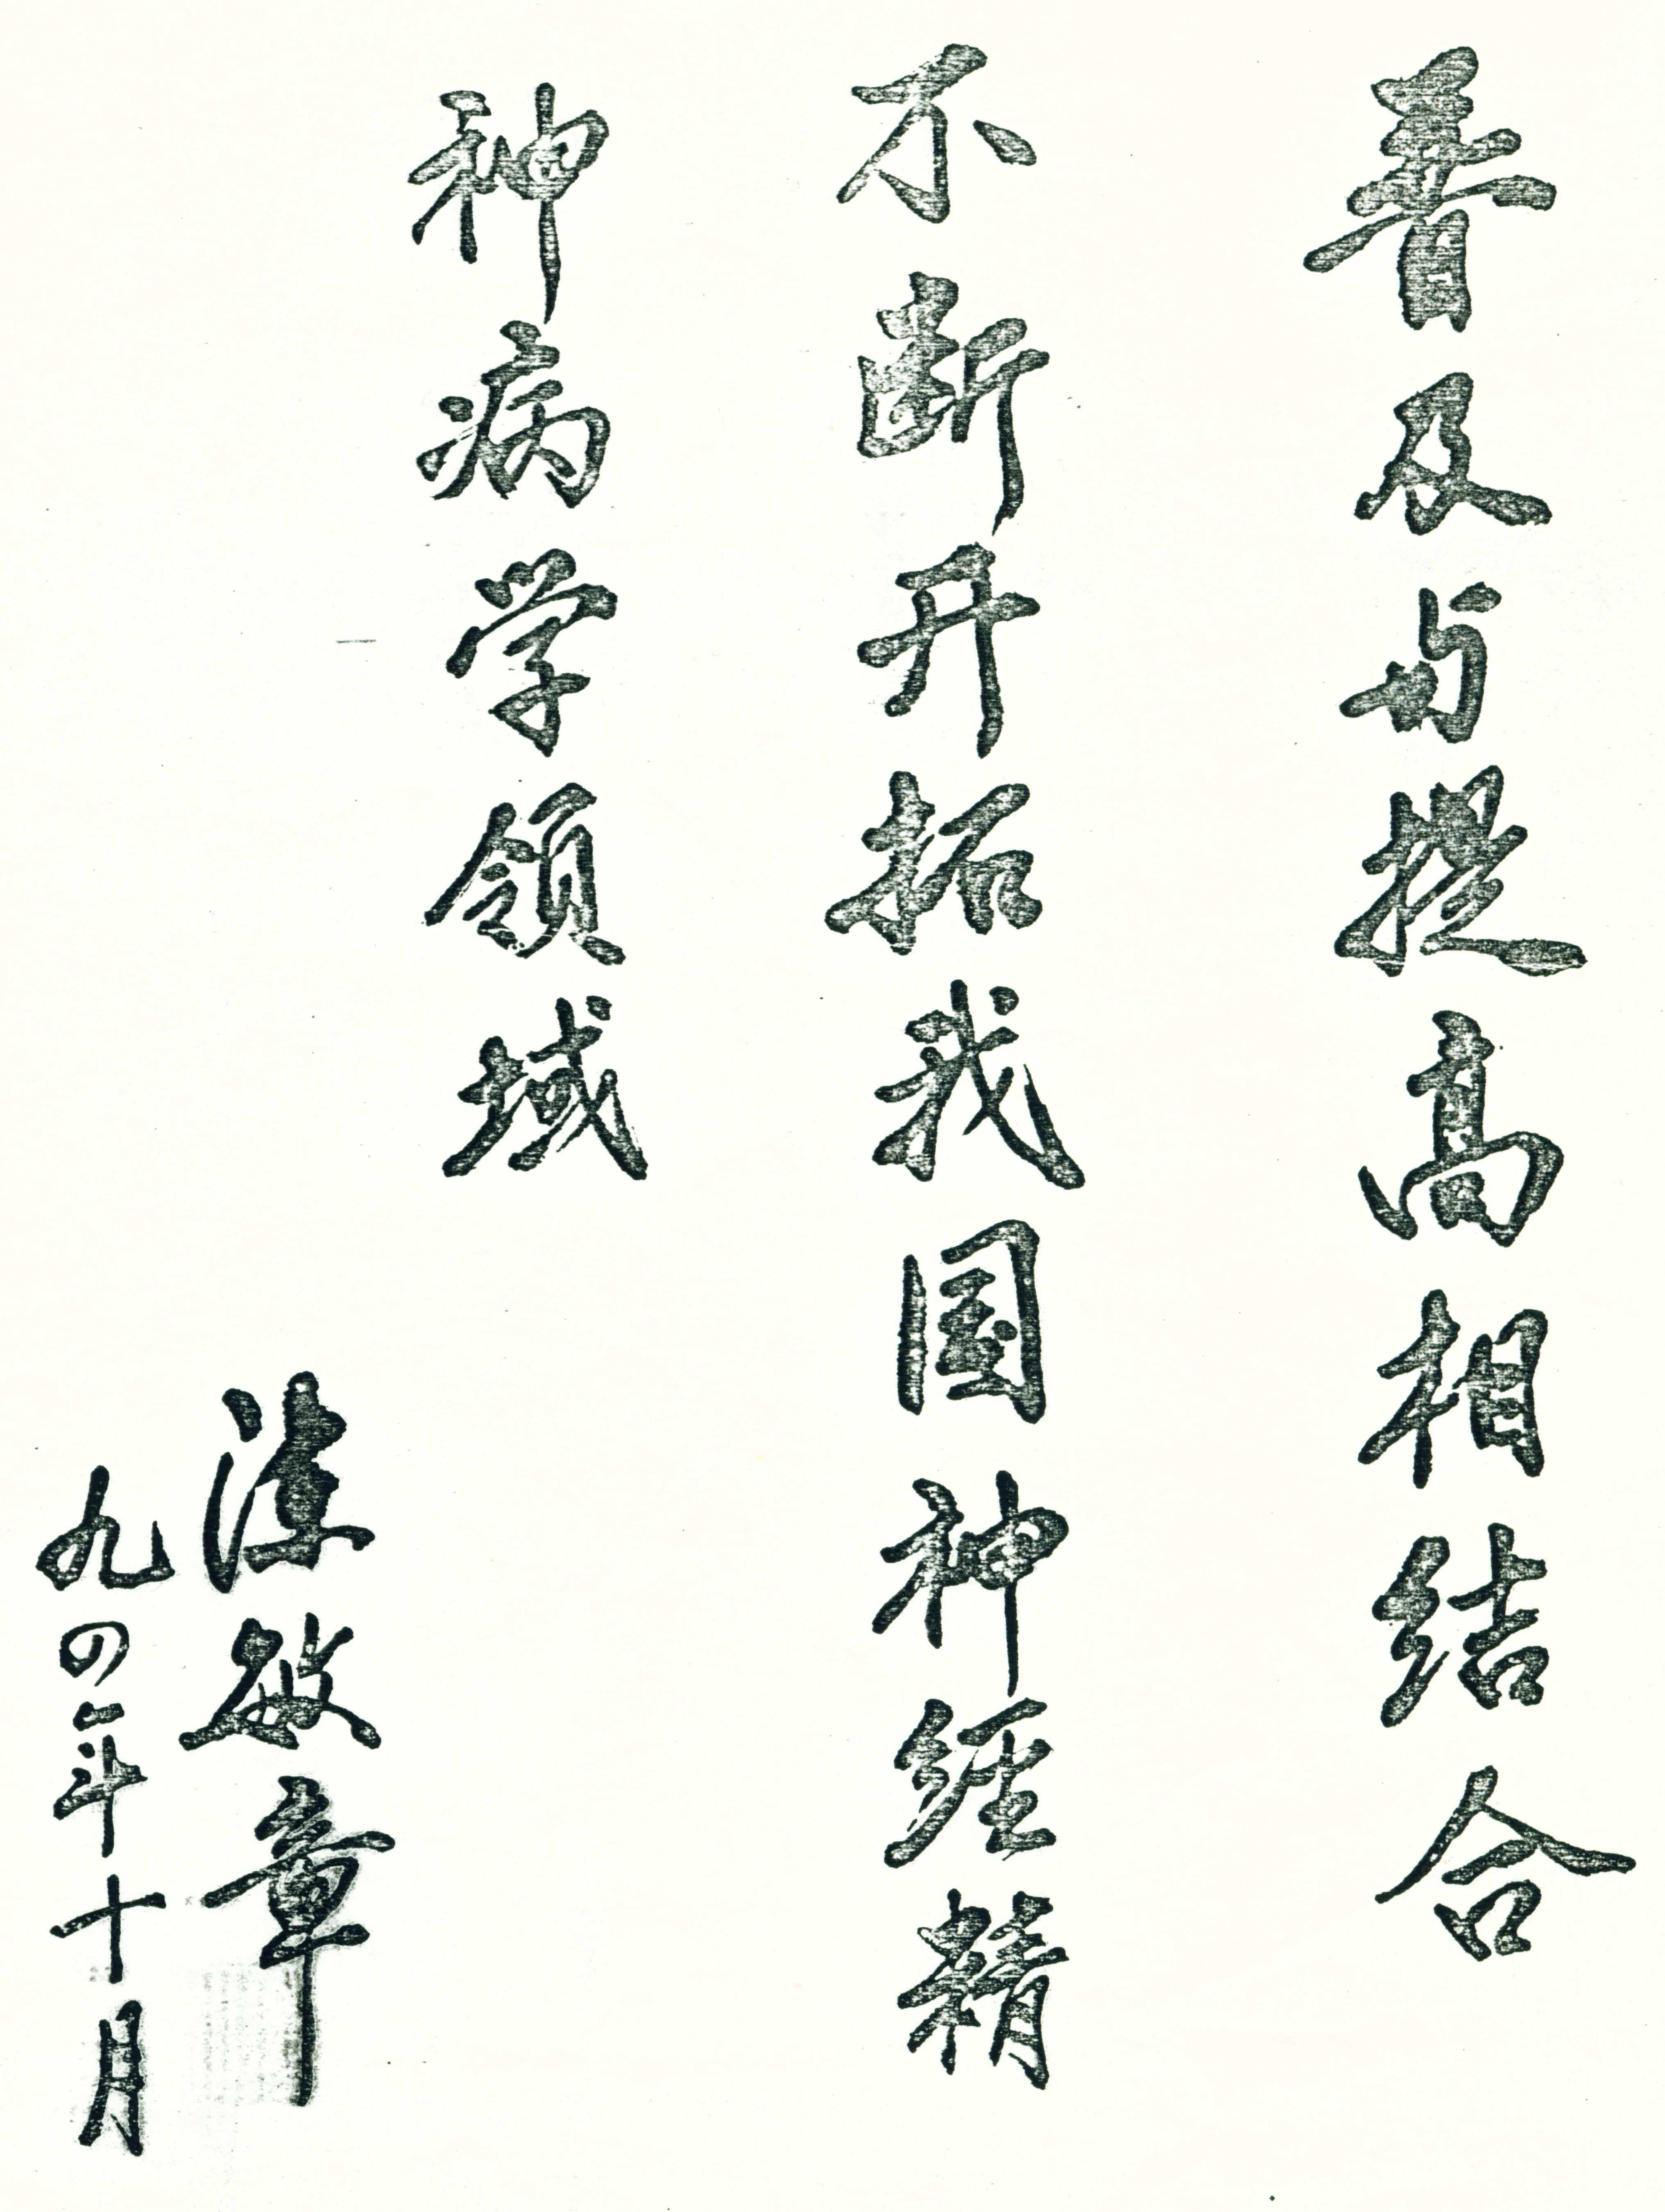 普及与提高相结合
不断开拓我国神经精
神病学领域
陈敏章
九四年十月